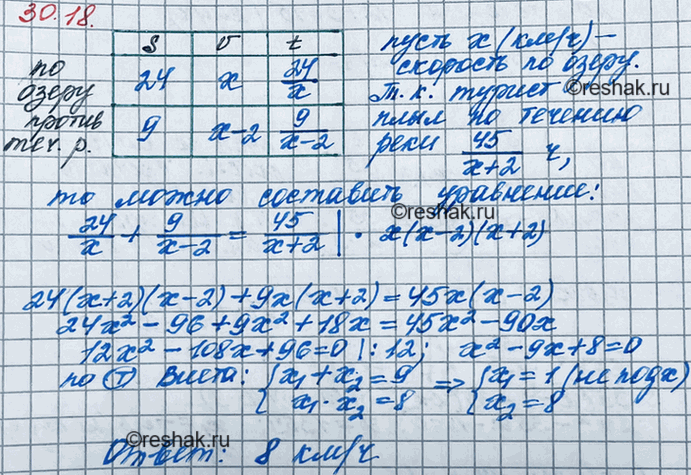 30.18.
S v t
по озеру 24 x 24/x
против теч. р. 9 x-2 9/(x-2)
пусть x (км/ч) –
скорость по озеру.
©reshak.ru
Т. к. турист
плыл по течению
реки 45/(x+2) ч,
то можно составить уравнение:
©reshak.ru
24/x + 9/(x-2) = 45/(x+2) | · x(x-2)(x+2)
24(x+2)(x-2)+9x(x+2)=45x(x-2)
24x² - 96 + 9x² + 18x = 45x² - 90x
12x² - 108x + 96 = 0 |:12; x² - 9x + 8 = 0
по Ⓣ Виета: { x₁ + x₂ = 9 => { x₁ = 1 (не подх)
{ x₁ · x₂ = 8 { x₂ = 8
©reshak.ru
Ответ: 8 км/ч